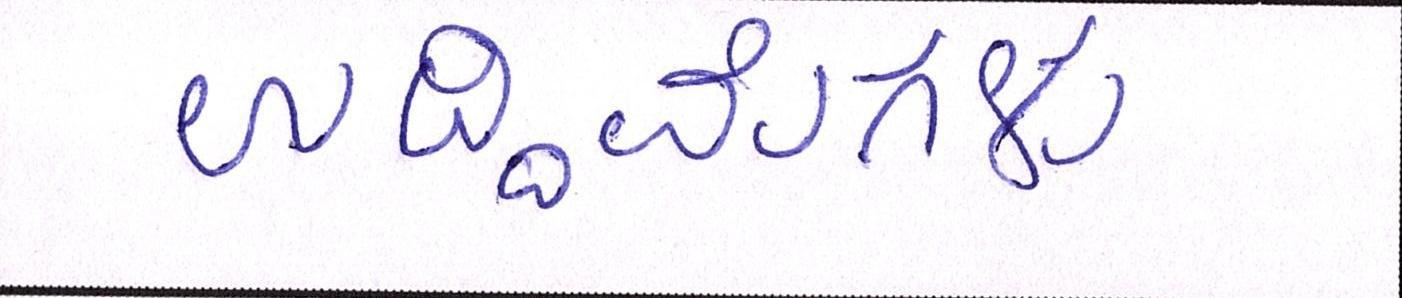 ಉದ್ದಿಮೆಗಳು